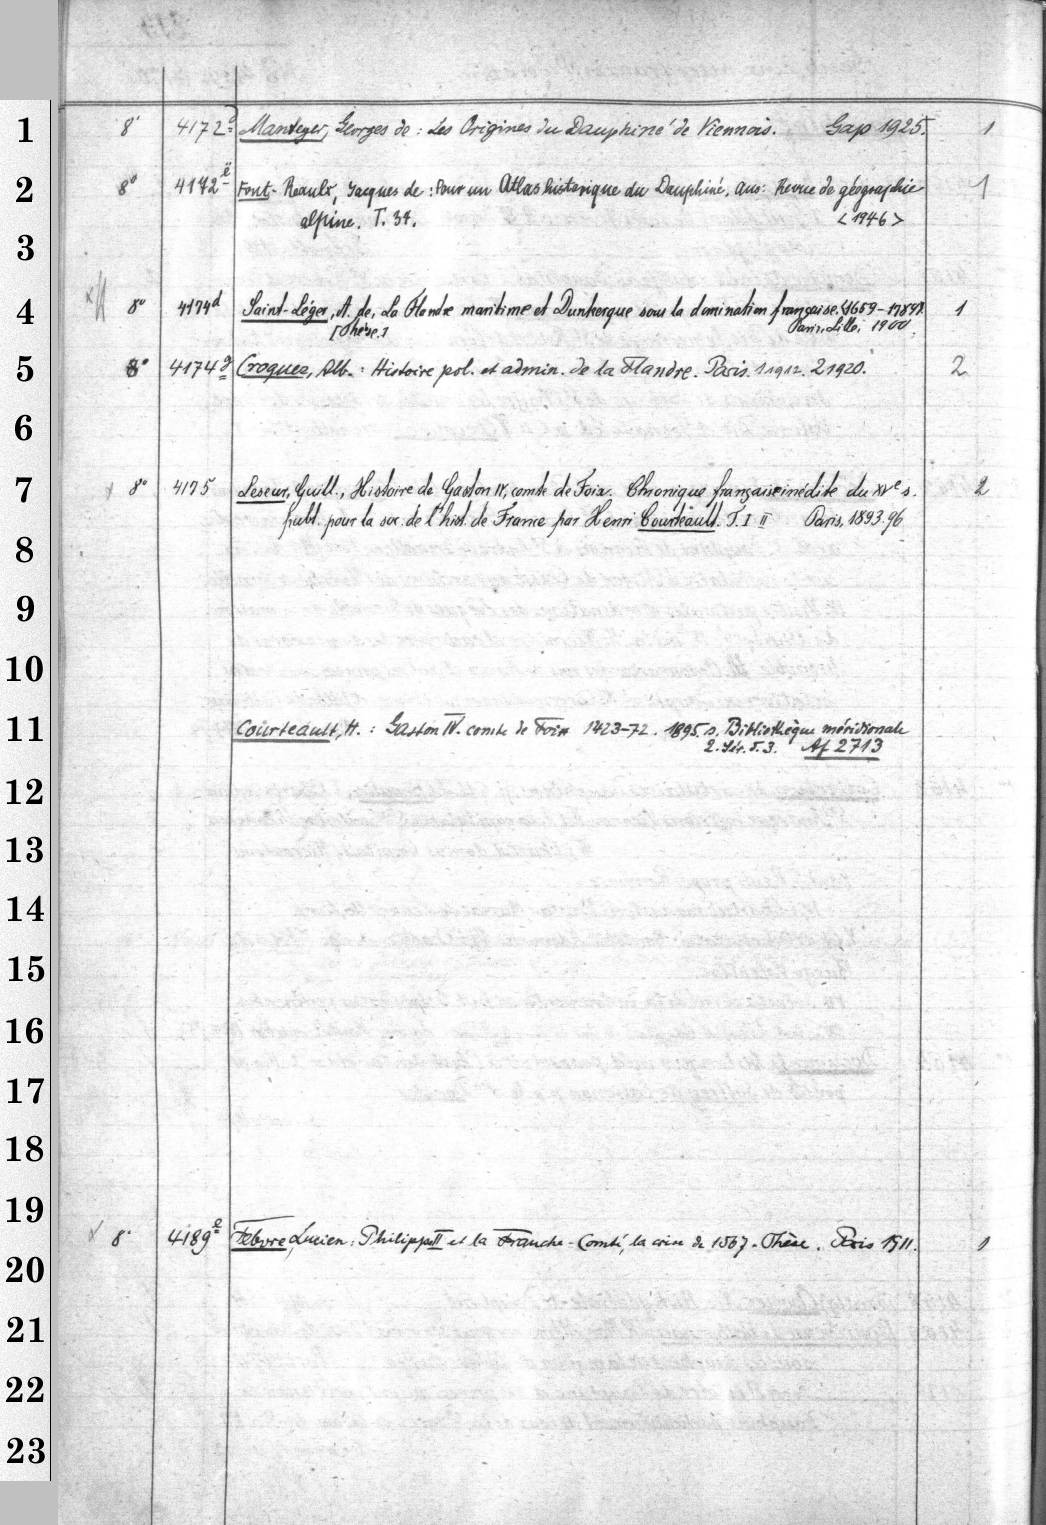 1
8° 4172 Manteyer, Georges de: Les Origines du Dauphiné de Viennois. Gap 1925. 1
2
8° 4172 ë Font-Reaulx, Jacques de: Pour un Atlas historique du Dauphiné. Aus: Revue de géographie 1
alpine. T. 34. <1946>
3
4
8° 4174d Saint-Léger, A. de, La Flandre maritime et Dunkerque sous la domination française. (1659-1789). 1
[Thèse.] Paris, Lille, 1900.
5
8° 4174g Croquez, Alb.: Histoire pol. et admin. de la Flandre. Paris. 1 1912. 2 1920. 2
6
7
8° 4175 Leseur, Guill., Histoire de Gaston IV, comte de Foix. Chronique française inédite du XVe s. 2
publ. pour la soc. de l'hist. de France par Henri Courteault. T. I II Paris, 1893.96
8
9
10
11
Courteault, H.: Gaston IV. comte de Foix 1423-72. 1895. s. Bibliothèque méridionale
2. Sér. T. 3. Af 2713
12
13
14
15
16
17
18
19
8° 4189e Febvre, Lucien: Philippe II et la Franche-Comté, la crise de 1567. Thèse. Paris 1911. 1
20
21
22
23